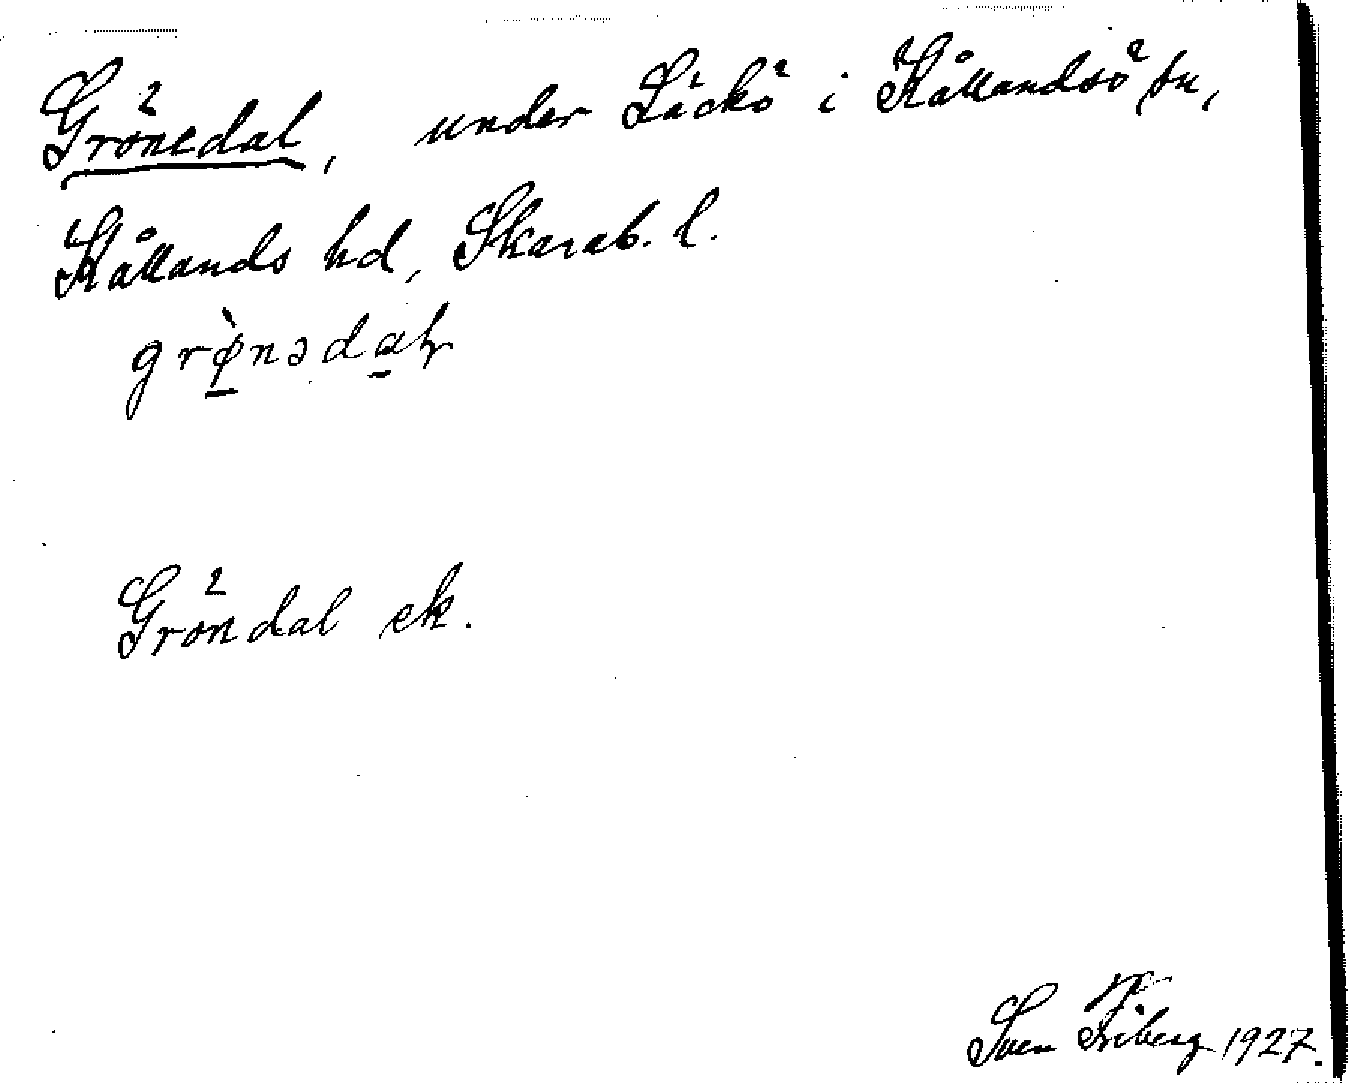 Grönedal, under Läckö i Kållandsö sn,
Kållands hd, Skarab. l.
grø̀nədaɫ
Gröndal ek.
Sven Friberg 1927.